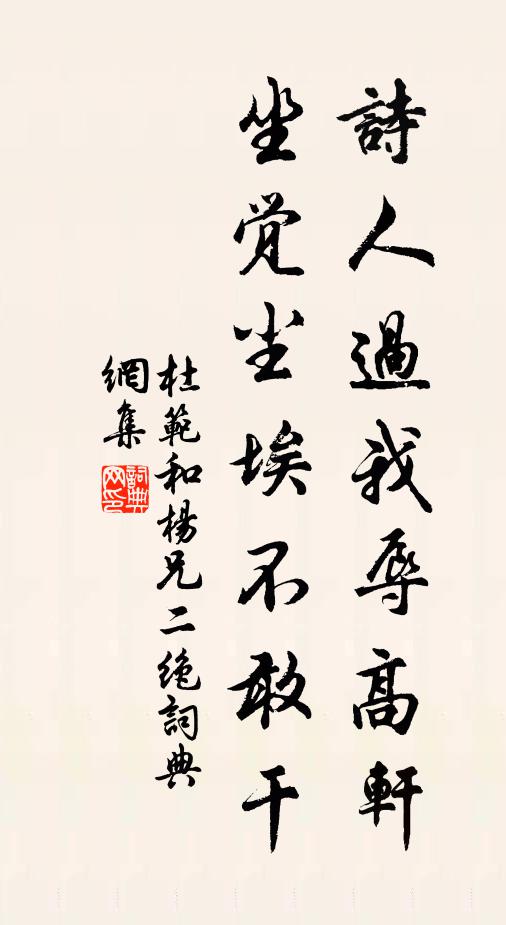 詩人過我辱高軒
坐覺尘埃不敢干
杜範和楊兄二绝詞典
網集
詞典
网印